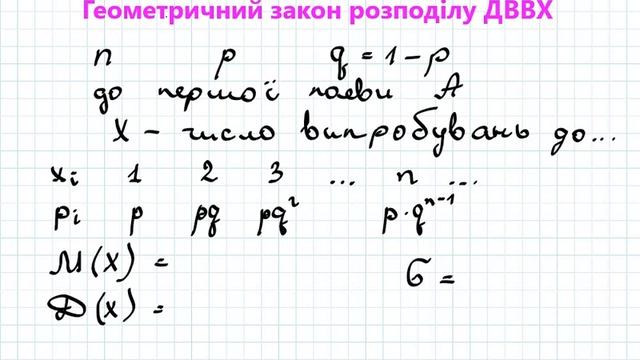 Геометричний закон розподілу ДВВХ
n p q = 1 - p
до першої появи A
X - число випробувань до...
xᵢ 1 2 3 ... n ...
pᵢ p pq pq² p·qⁿ⁻¹
M(X) =
σ =
D(X) =